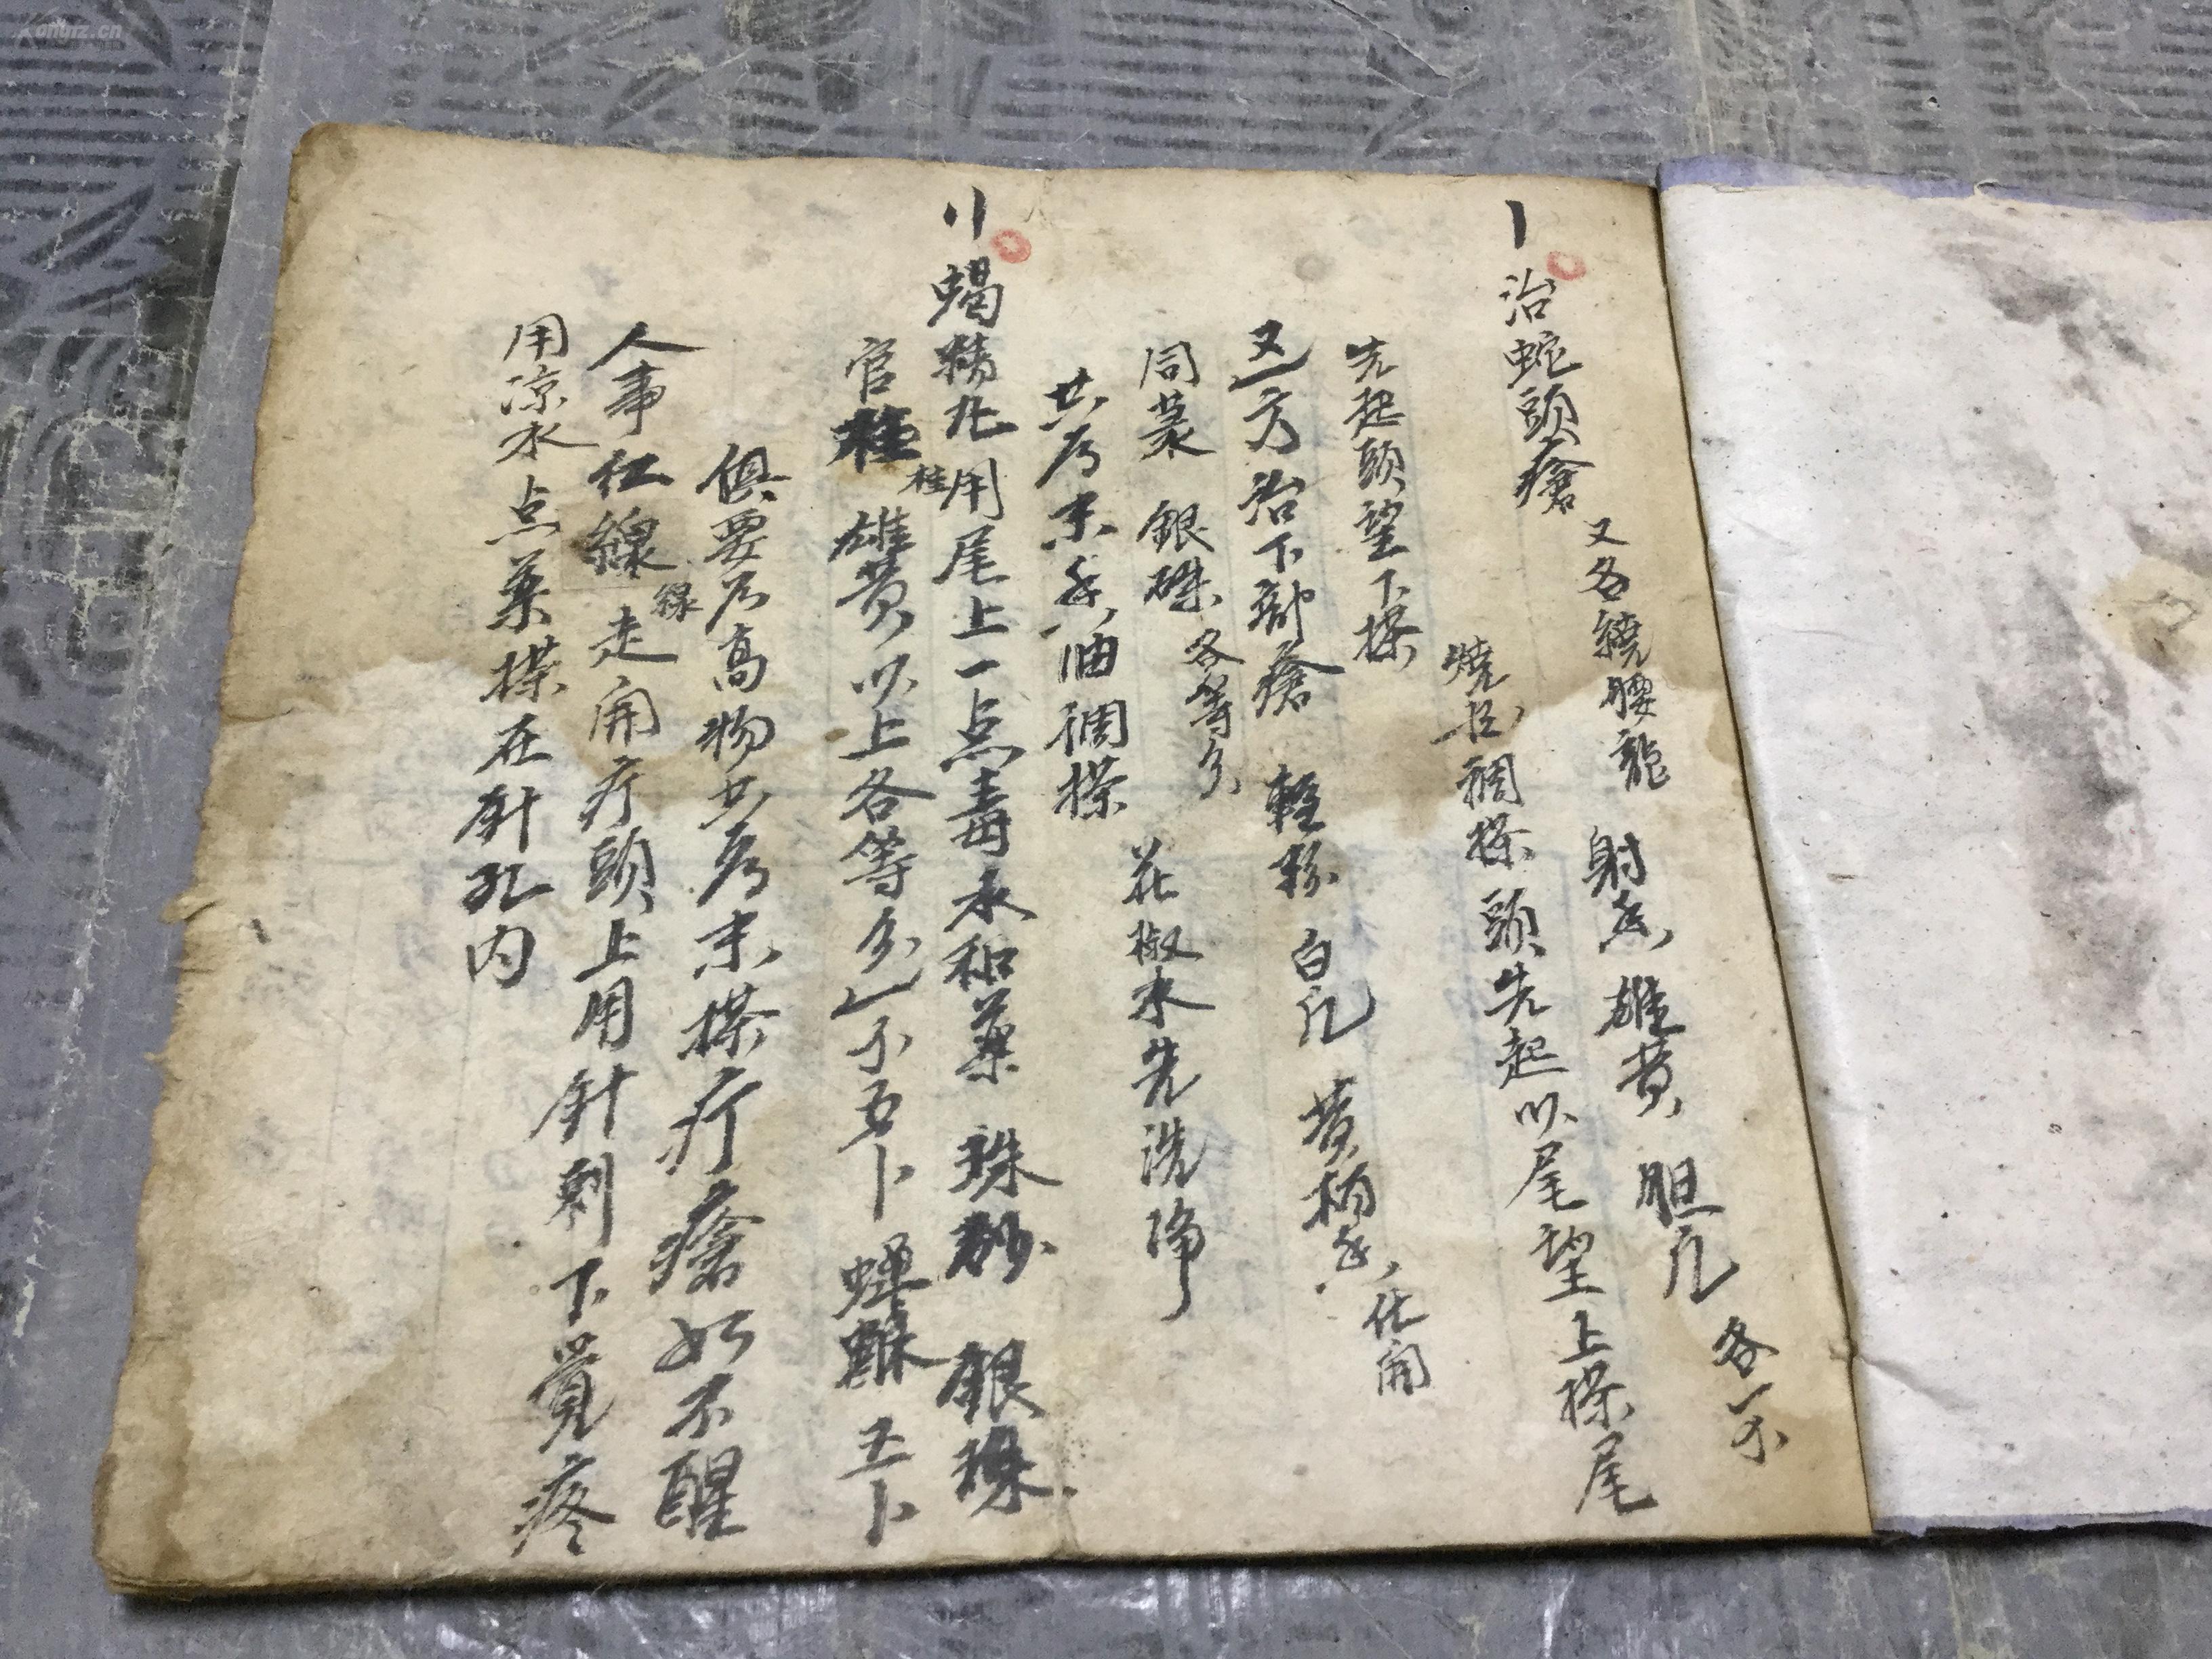 〡治蛇頭瘡 又名繞腰龍 射香 雄黄 胆凡 各一
燒 調搽 頭先起以尾望上搽尾
先起頭望下搽
又一方治下部瘡 輕粉 白凡 黄柏 香
同菉 銀硃 各等分 花椒水先洗净
共为末香油調搽
〢蝎精九用尾上一点毒水和藥 珠砂 銀珠
官桂 桂 雄黄 以上各等分 五卜 蟬酥 五卜
俱要为高物共为末搽疔瘡如不醒
人事紅線 線 走开疔頭上用針刺下覺疼
用凉水点藥搽在針孔内
kongfz.cn